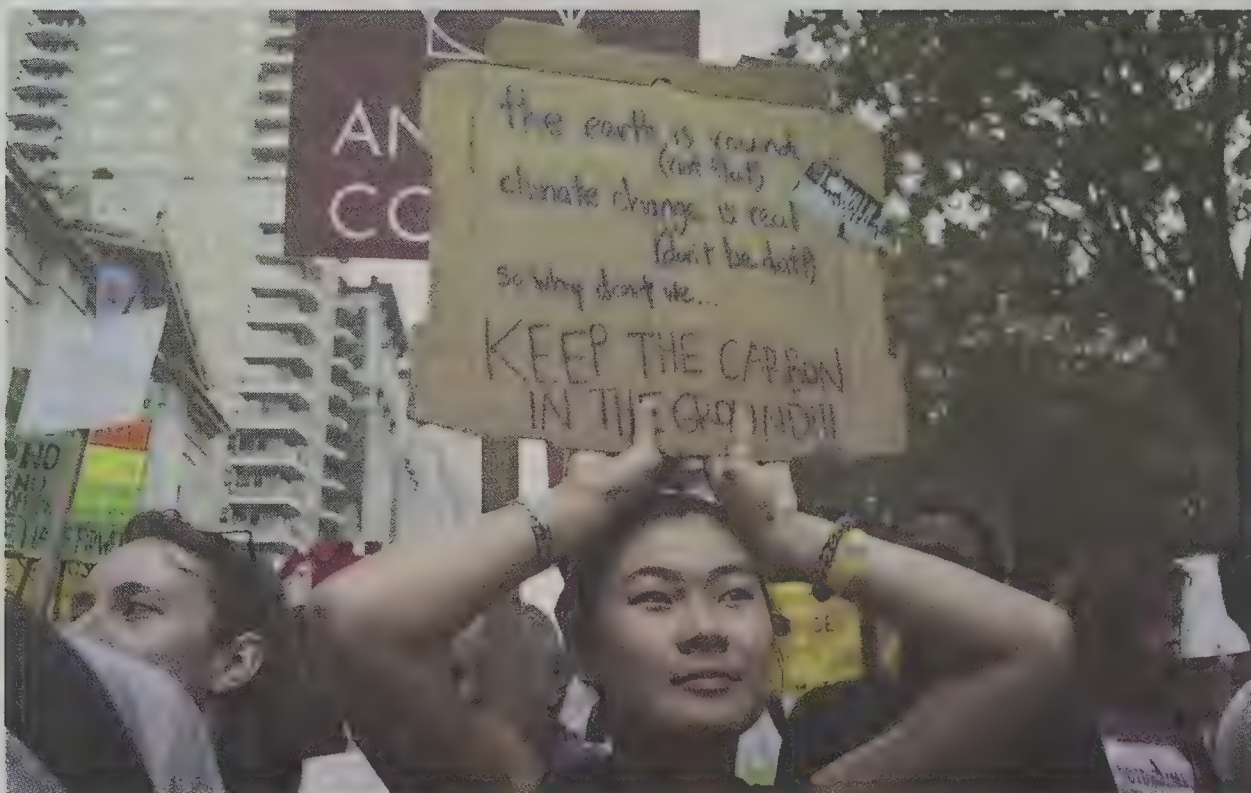 AN
CO
the earth is round
(not flat)
climate change is real
(don't be daft)
so why don't we...
KEEP THE CARBON
IN THE GROUND!!